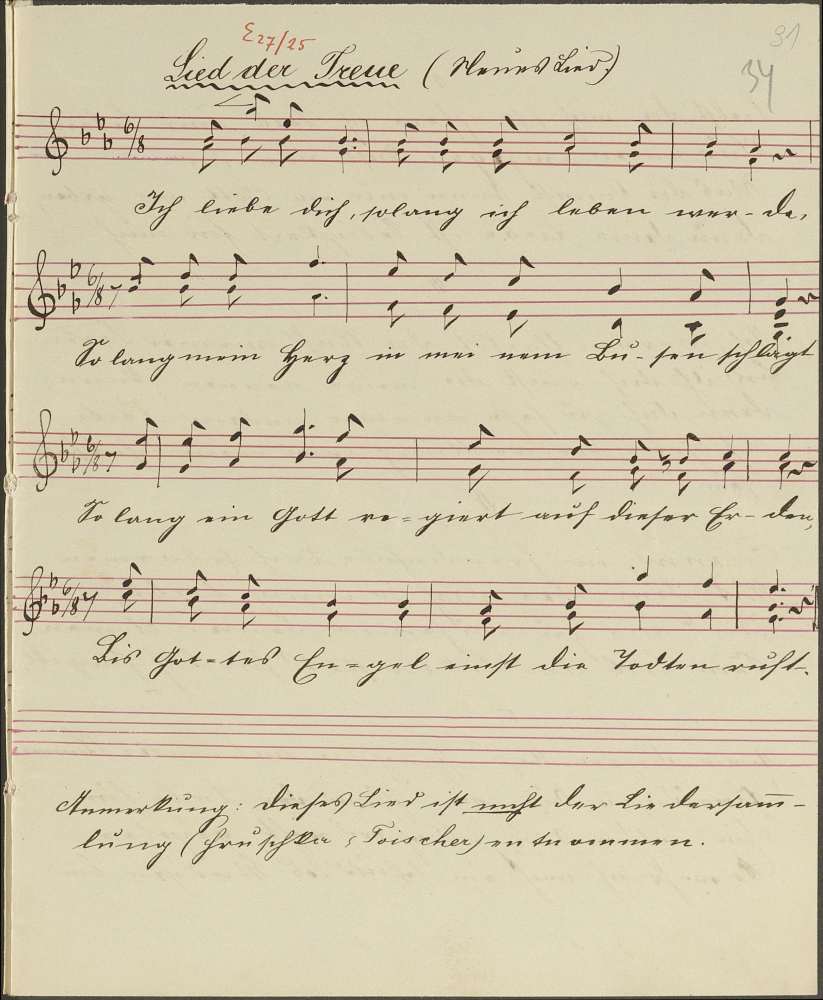 E27/25
31
34
Lied der Treue (Neues Lied.)
6/8
Ich liebe dich, solang ich leben wer-de,
6/8
So lang mein Herz in mei nem Bu-sen schlägt
6/8
So lang ein Gott re=giert auf dieser Er-den,
6/8
Bis Got=tes En=gel einst die Todten ruft.
Anmerkung: Dieses Lied ist nicht der Liedersam̄-
lung (Hruschka & Toischer) entnommen.